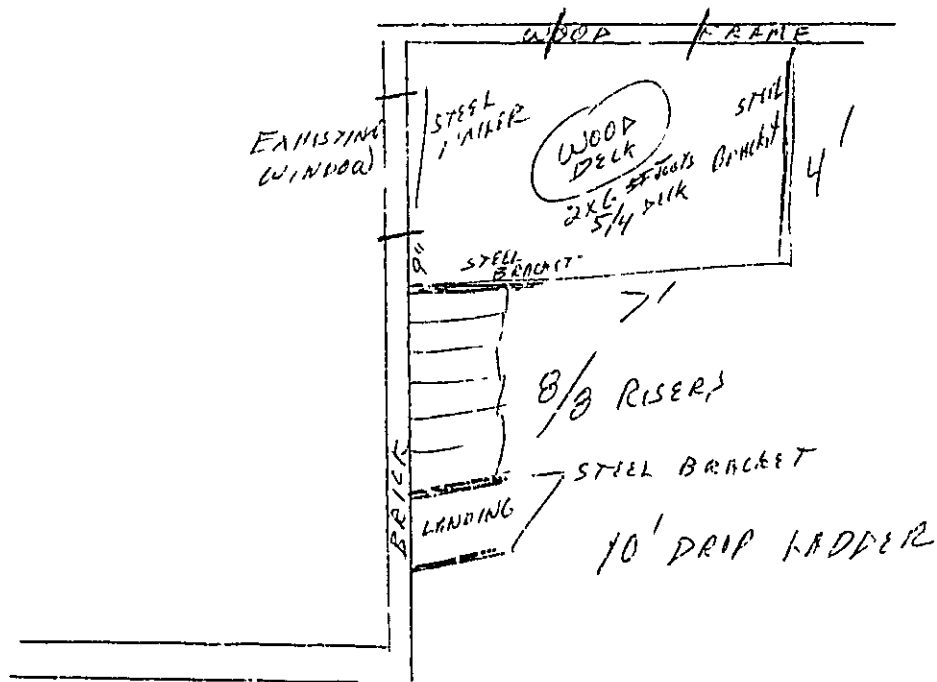 WOOD FRAME
EXHISTING
WINDOW
STEEL
WOOD
DECK
2x6
5/4 DECK
STEEL
BRACKET
4'
9"
STEEL
BRACKET
7'
8/8 RISERS
STEEL BRACKET
BRICK
LANDING
10' DROP LADDER